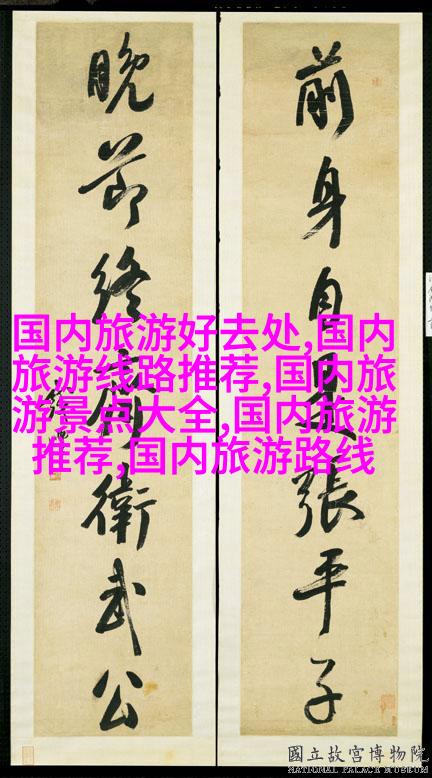 前身自是張平子
晚節終衛武公
国内旅游好去处,国内
旅游线路推荐,国内旅
游景点大全,国内旅游
推荐,国内旅游路线
國立故宮博物院
NATIONAL PALACE MUSEUM